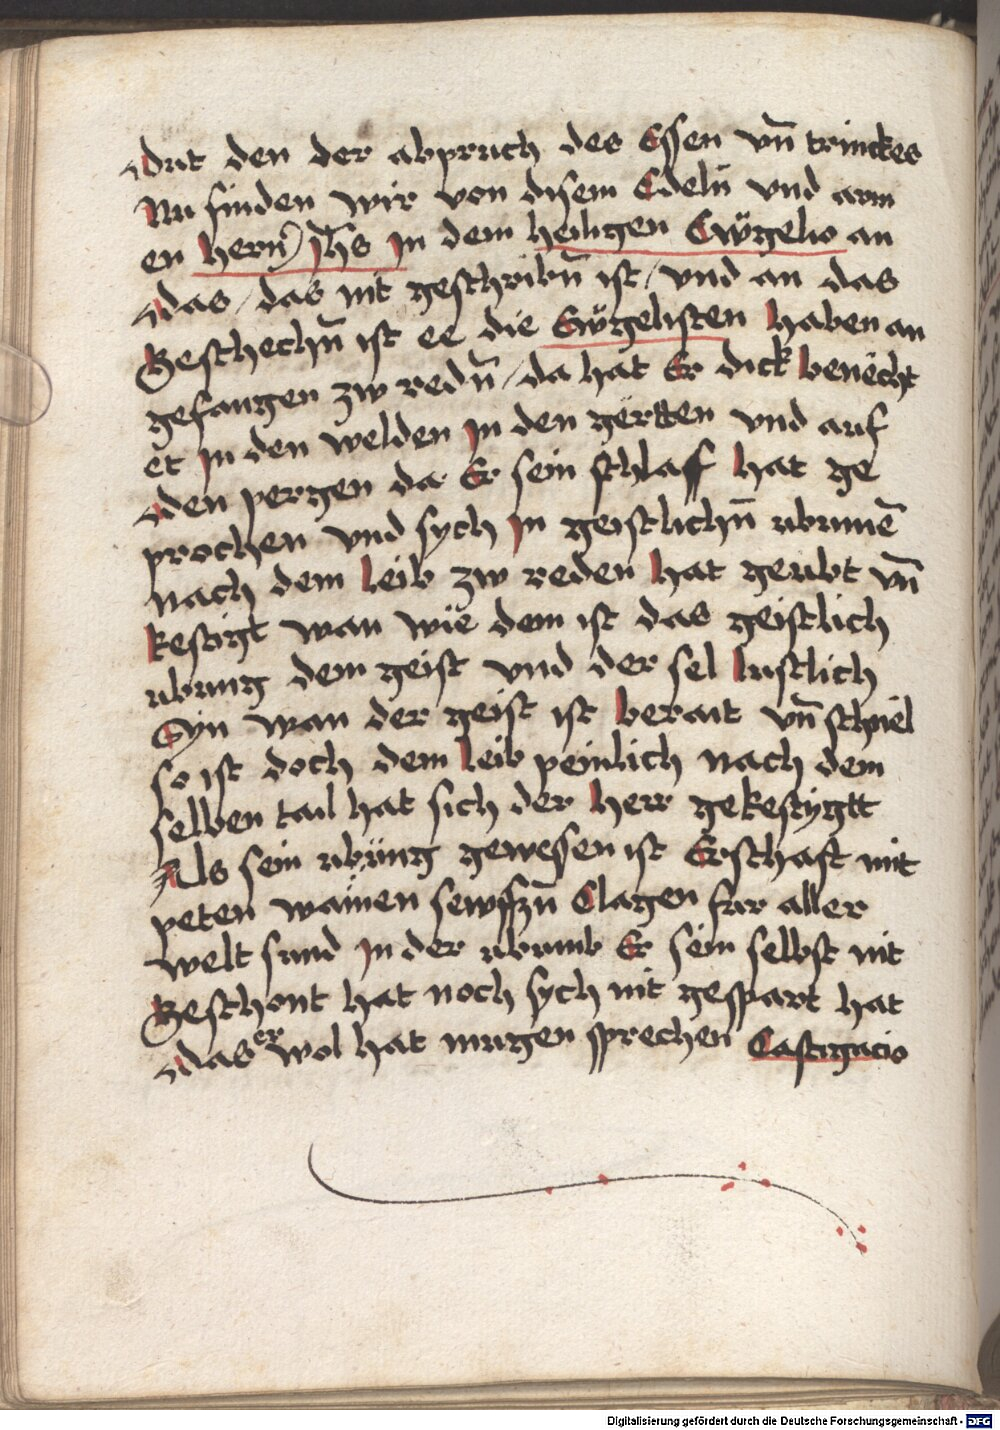 dut den der abpruch des Essen vn̄ trinckes
Nu finden wir von disem Edeln̄ vnd arm
en hern̄ Jh̄s Jn dem heiligen Ewꝟgelio an
das / das nit geschribn̄ ist / vnd an das
Geschechn̄ ist ee die Ewgelisten haben an
gefangen zw redn̄ / da hat Er dick benëcht
et Jn den welden Jn den gërtten vnd auf
den pergen da Er sein schlaff hat ge
prochen vnd sych Jn geistlichn̄ ubunē
nach dem leib zw reden hat geubt vn̄
kestigt wan wie dem ist das geistlich
ubung dem geist vnd der sel lustlich
Syn wan der geist ist berait vn̄ schniel
so ist doch dem leib peinlich nach dem
selben tail hat sich der herr gekestygtt
Als sein ubüng gewesen ist Erschaft mit
peten wainen sewfftzn̄ Clagen fur aller
welt sund Jn der ubunb Er sein selbst nit
Geschont hat noch sych nit gespart hat
das er wol hat mugen sprechen Castigacio
Digitalisierung gefördert durch die Deutsche Forschungsgemeinschaft - DFG